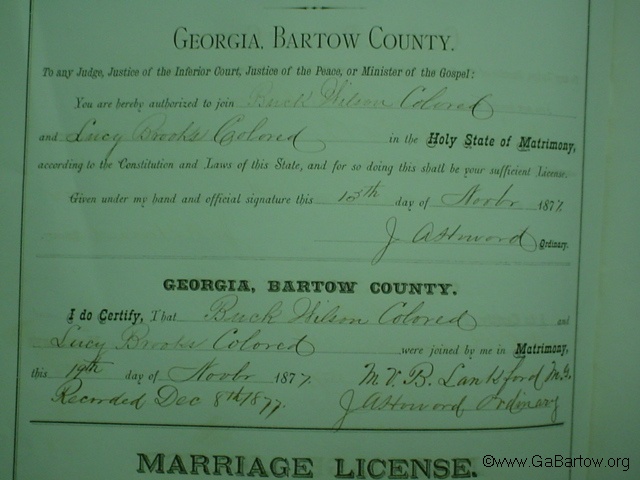 GEORGIA, BARTOW COUNTY.
To any Judge, Justice of the Inferior Court, Justice of the Peace, or Minister of the Gospel:
You are hereby authorized to join Buck Wilson Colored
and Lucy Brooks Colored in the Holy State of Matrimony,
according to the Constitution and Laws of this State, and for so doing this shall be your sufficient License.
Given under my hand and official signature this 15th day of Novbr 1877.
J A Howard Ordinary.
GEORGIA, BARTOW COUNTY.
I do Certify, That Buck Wilson Colored and
Lucy Brooks Colored were joined by me in Matrimony,
this 19th day of Novbr 1877. M. V. B. Lankford M.G.
Recorded Dec 8th 1877. J A Howard Ordinary
MARRIAGE LICENSE.
©www.GaBartow.org